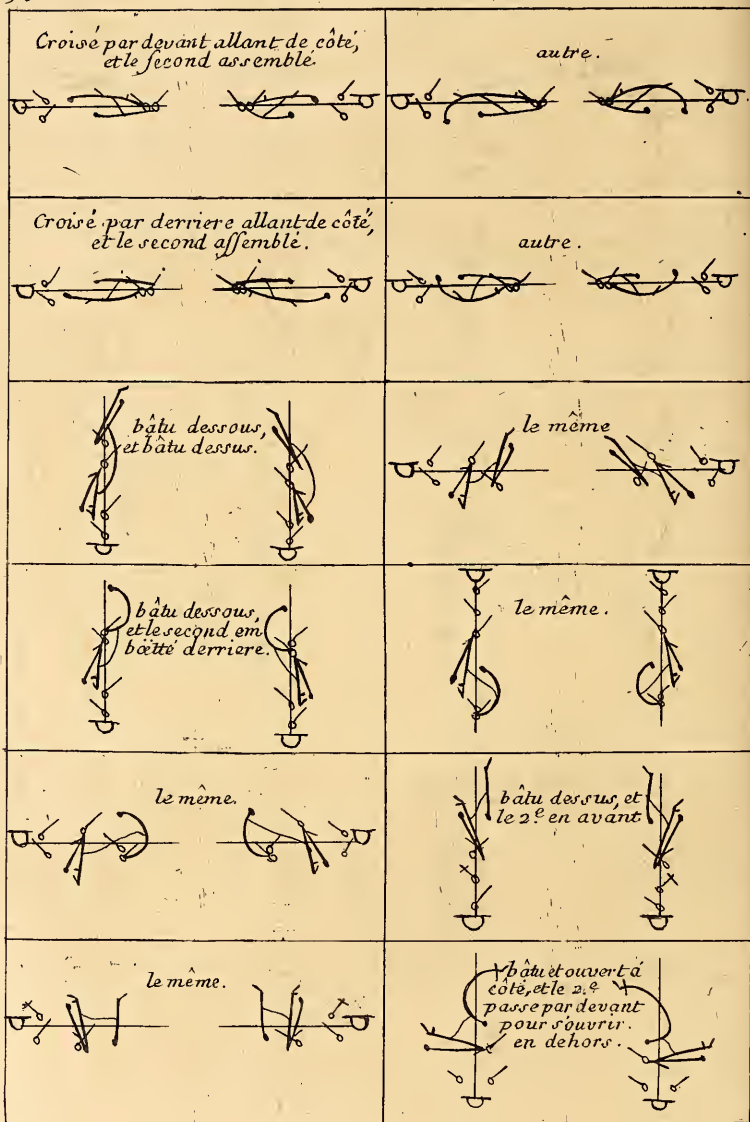 Croisé par devant allant de côté,
et le second assemblé.
autre.
Croisé par derriere allant de côté,
et le second assemblé.
autre.
bâtu dessous,
et bâtu dessus.
le même
bâtu dessous,
et le second em
böetté derriere.
le même.
le même.
bâtu dessus, et
le 2.e en avant
le même.
bâtu et ouvert à
côté, et le 2.e
passe par devant
pour s'ouvrir.
en dehors.